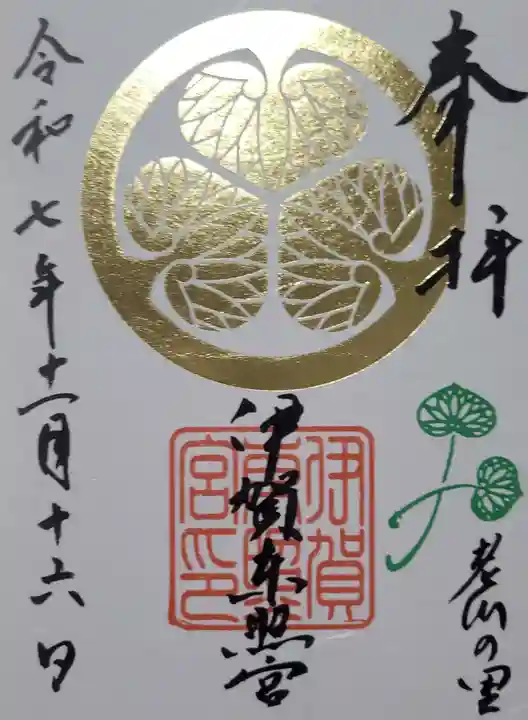 奉拝
老川の里
伊賀東照宮
伊賀東照宮印
令和七年十一月十六日